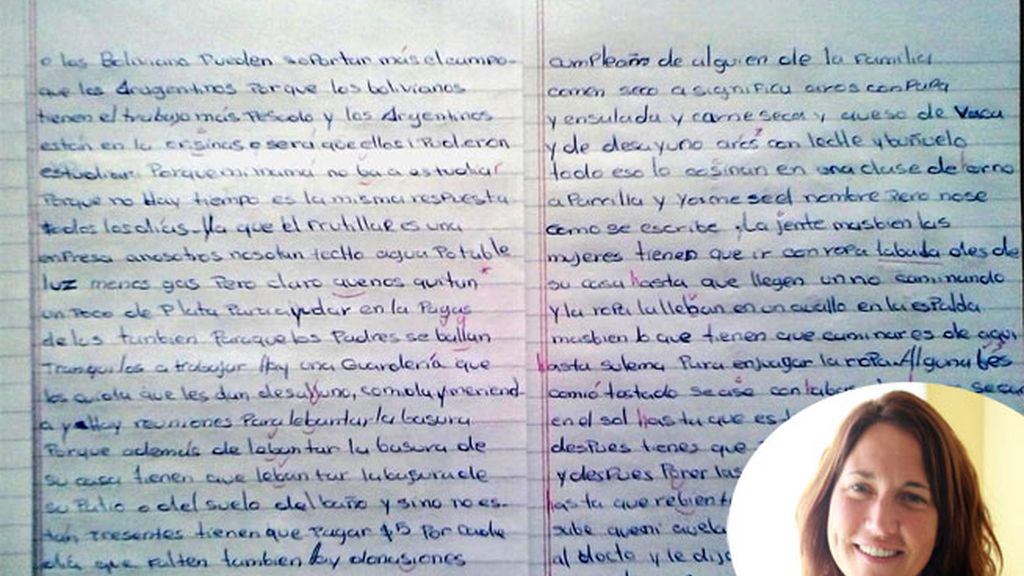 o los Boliviano Pueden soportar más el campo-
que los Arugentinos Porque los bolivianos
tienen el trabajo más Pescado y los Argentinos
están en la orsinas o será que ellos i Pudieron
estudiar. Porque mi mamá no ba a estudiar
Porque no Hay tiempo es la misma respuesta
todos los días. Ya que el Frutillar es una
enfresa a nosotros nos dan techo agua Potable
luz menos gas Pero claro que nos quitan
un Poco de Plata Para ayudar en la Pagas
de las tanbien Para que los Padres se ballan
Tranquilos a trabajar Hay una Guardería que
los cuida que les dan desalluno, comida y meriend-
a y Hay reuniones Para lebantar la basura
Porque además de lebantar la basura de
su casa tienen que lebantar la basura de
su Patio o del suelo del baño y si no es-
tán Presentes tienen que Pagar $5 Por cada
día que falten tambien Hay donasiones
cumpleaño de alguien de la Familia
comen seco a significa aros con PaPa
y ensalada y carne seca y queso de vaca
y de desayuno arós con leche y buñuelo
todo eso lo cosinan en una clase de orno
a Parrilla y Yo me se el nombre Pero no se
como se escribe, La jente mas bien las
mujeres tienen que ir con ropa labada desde
su casa hasta que llegen un rio caminando
y la ropa la lleban en un auallo en la espalda
mas bien que tienen que caminar es de aqui
hasta sulema Para enjuagar la ropa. Alguna bes
comió tostado se ase con
en el sol hasta que es
despues tienes que
y despues Poner las
hasta que rebient
sube que mi awela
al docto y le dij